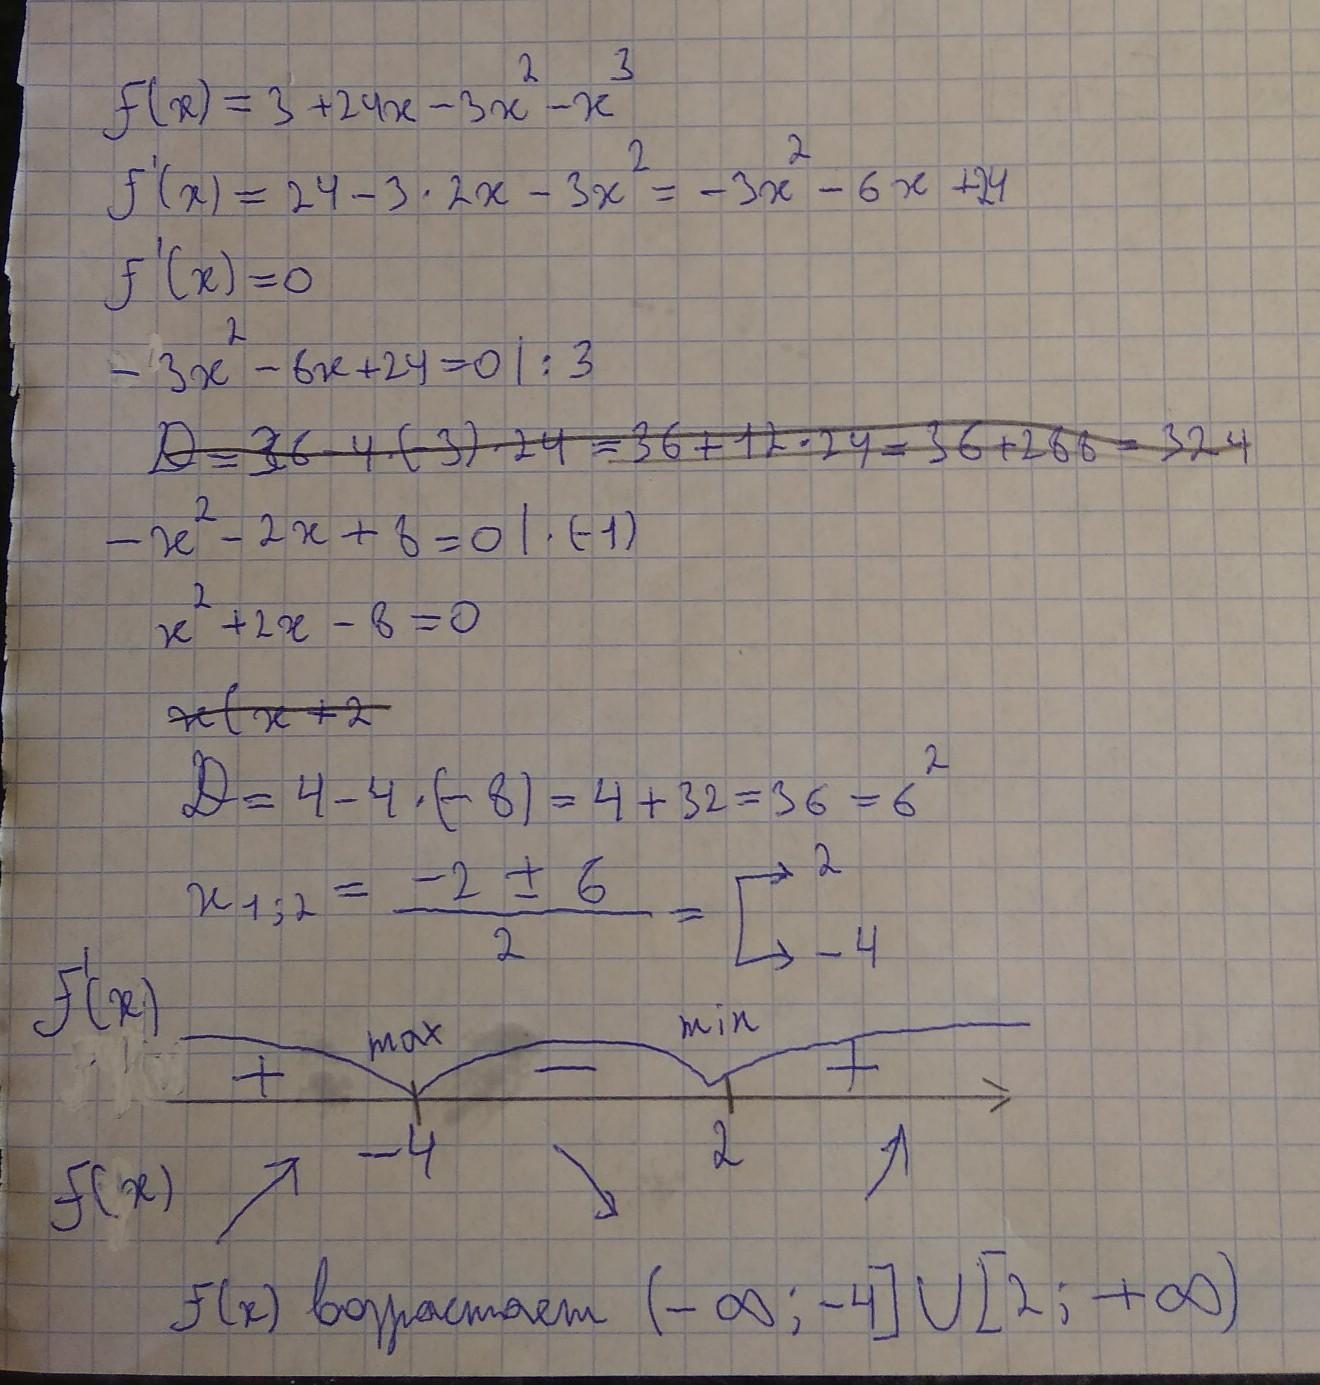 f(x) = 3 + 24x - 3x² - x³
f'(x) = 24 - 3 · 2x - 3x² = -3x² - 6x + 24
f'(x) = 0
-3x² - 6x + 24 = 0 | : 3
D = 36 - 4 · (-3) · 24 = 36 + 12 · 24 = 36 + 288 = 324
-x² - 2x + 8 = 0 | · (-1)
x² + 2x - 8 = 0
x(x + 2
D = 4 - 4 · (-8) = 4 + 32 = 36 = 6²
x₁;₂ = (-2 ± 6) / 2 = [→ 2 → -4
f'(x) + max - min +
-4 2
f(x) ↗ ↘ ↗
f(x) возрастает (-∞; -4] ∪ [2; +∞)